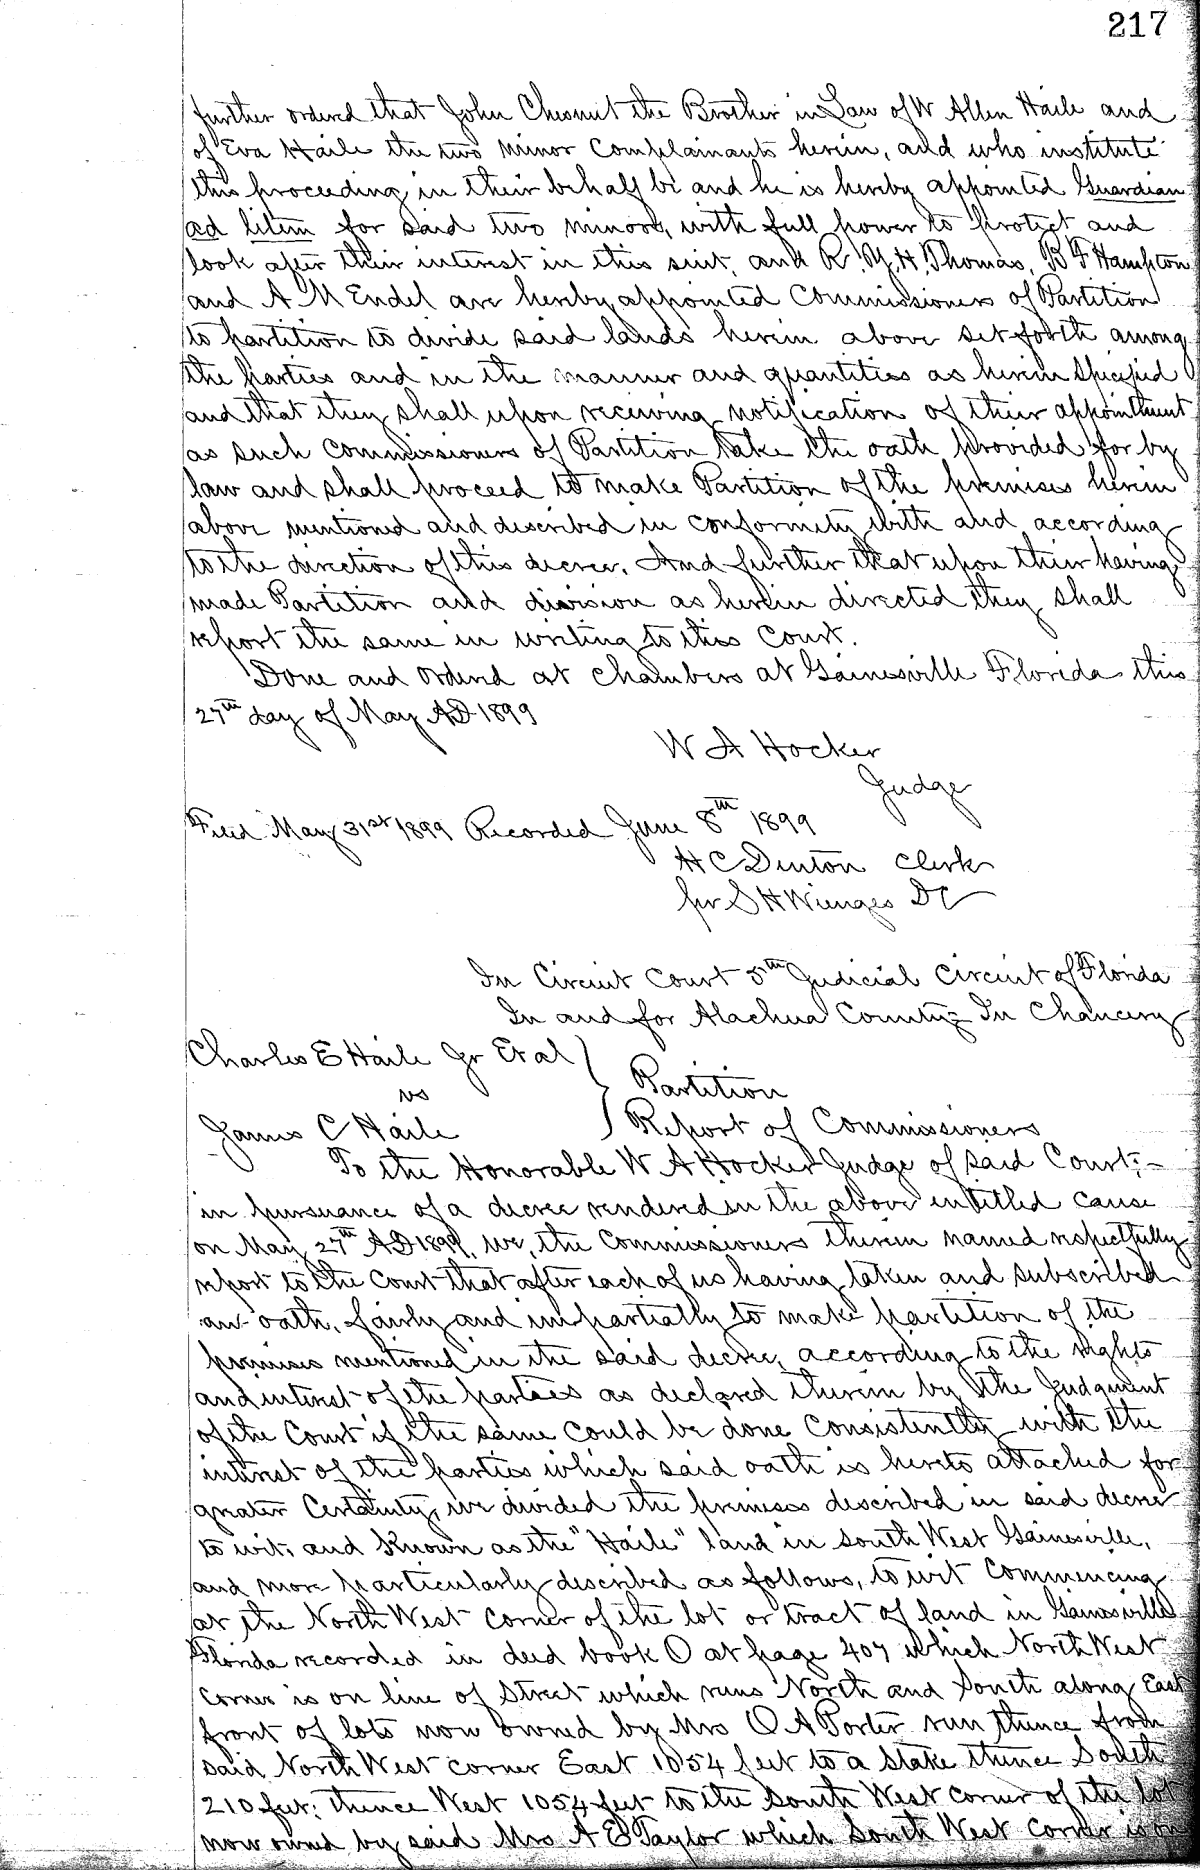 217
further ordered that John Chesnut the Brother in Law of W Allen Haile and
of Eva Haile the two minor Complainants herein, and who institute
this proceeding in their behalf be and he is hereby appointed Guardian
ad litem for said two minors, with full power to protect and
look after their interest in this suit, and R. Y. H. Thomas, B F Hampton
and A M Endel are hereby appointed Commissioners of Partition
to partition to divide said lands herein above set forth among
the parties and in the manner and quantities as herein specified
and that they shall upon receiving notification of their appointment
as such Commissioners of Partition take the oath provided for by
law and shall proceed to make Partition of the premises herein
above mentioned and described in conformity with and according
to the direction of this decree. And further that upon their having
made Partition and division as herein directed they shall
report the same in writing to this Court.
Done and ordered at Chambers at Gainesville Florida this
27th day of May AD 1899
W A Hocker
Judge
Filed May 31st 1899 Recorded June 8th 1899
H C Denton Clerk
per S H Wienges DC
In Circuit Court 5th Judicial Circuit of Florida
In and for Alachua County - In Chancery
Charles E Haile Jr Et al
vs
James C Haile
Partition
Report of Commissioners
To the Honorable W A Hocker Judge of said Court:-
in pursuance of a decree rendered in the above entitled cause
on May 27th AD 1899, we, the Commissioners therein named respectfully
report to the Court that after each of us having taken and subscribed
an oath, fairly and impartially to make partition of the
premises mentioned in the said decree, according to the rights
and interest of the parties as declared therein by the Judgment
of the Court if the same could be done Consistently with the
interest of the parties which said oath is hereto attached for
greater Certainty, we divided the premises described in said decree
to wit, and Known as the "Haile" land in South West Gainesville,
and more particularly described as follows, to wit Commencing
at the North West Corner of the lot or tract of land in Gainesville
Florida recorded in deed book O at page 407 which North West
Corner is on line of Street which runs North and South along East
front of lots now owned by Mrs O A Porter run thence from
said North West corner East 1054 feet to a stake thence South
210 feet; thence West 1054 feet to the South West corner of the lot
now owned by said Mrs A E Taylor which South West Corner is on